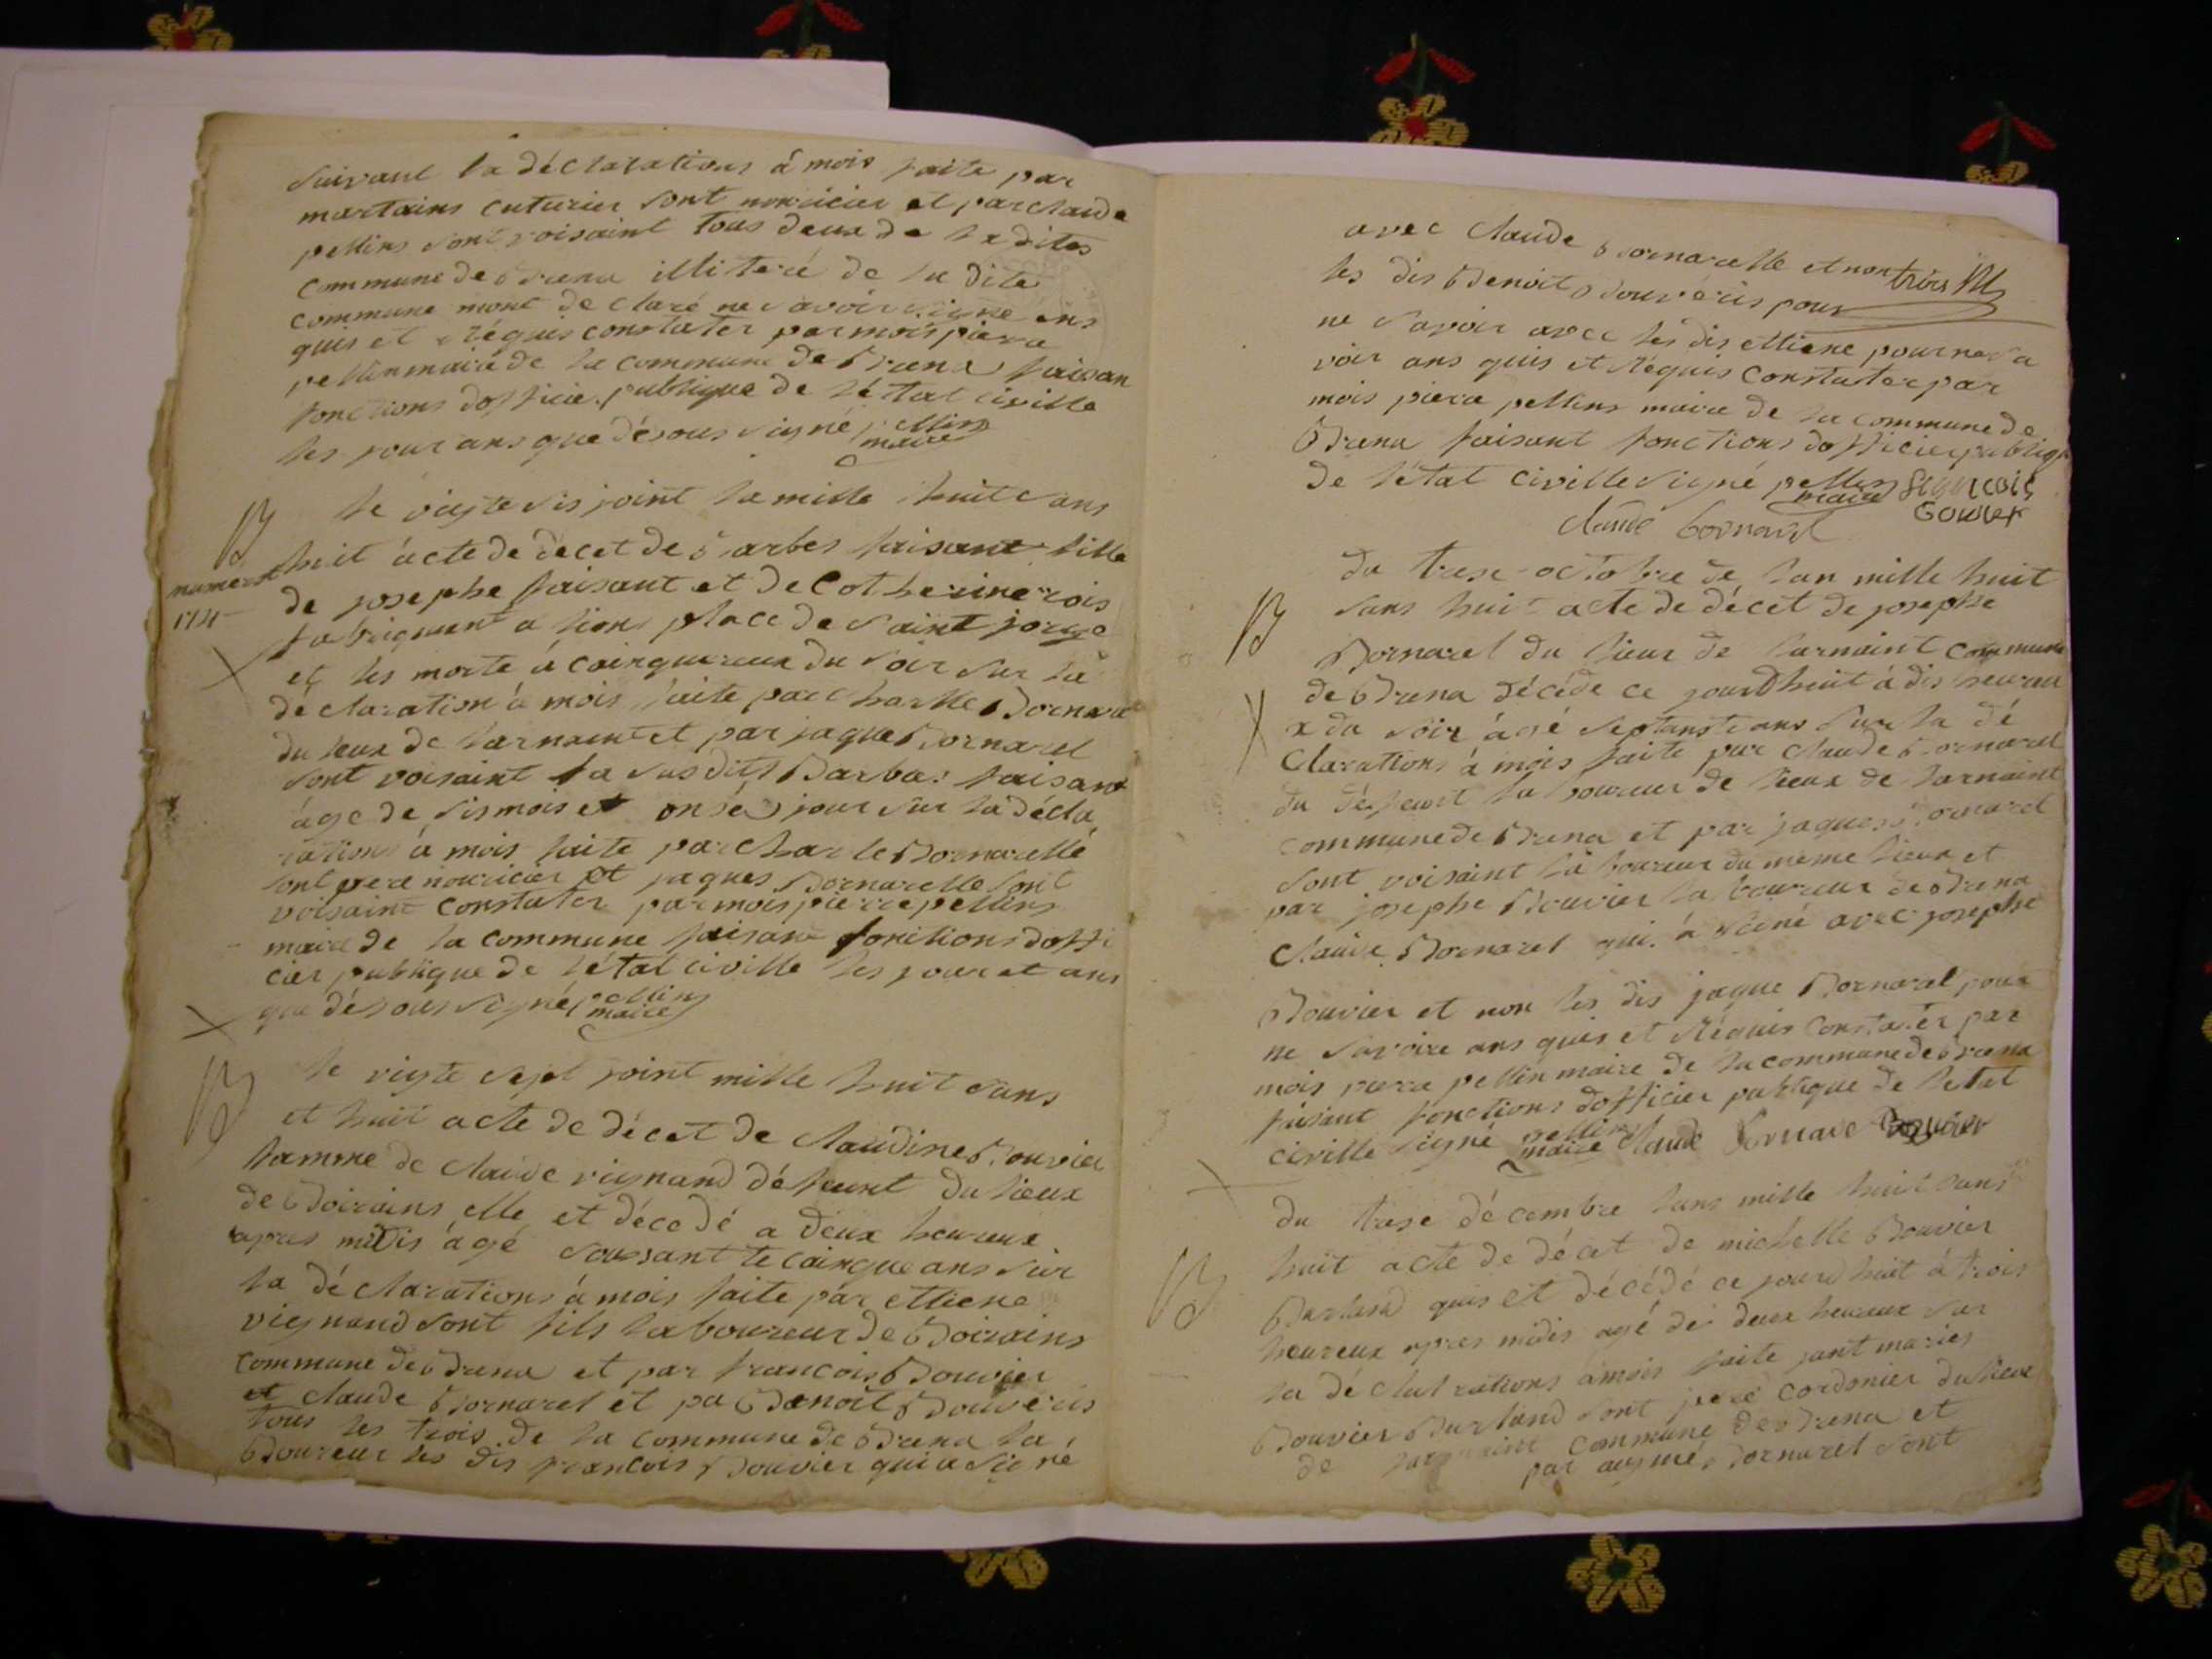 suivant la déclarations á mois faite par
martains cuturier sont nouricier et par claude
pellins sont voisaint tous deux de la dites
commune de Brena illiteré de la dite
commune mont declaré ne savoir signé ans
quis et réquis constater par mois piere
pellin maire de la commune de Brena faisan
fonctions dofficier publique de létat civille
les jour ans que désous signé pellin
maire
le vigte sis joint la mille huit sans
huit ácte de décet de Barbes faisant fille
numero
174
de josephe faisant et de Catherine rois
fabriquent a lions place de saint jorge
et les morte á cainqureux du soir sur la
déclaration á mois faite par Charlle Bornare
du lieux de larnaint et par jaque Bornarel
sont voisaint la susdits Barbas faisant
áge de sismois et onsé jour sur la décla
rations á mois faite par Charle Bornarelle
sont pere nouricier et jaques Bornarelle sont
voisaint constater par mois pierre pellins
maire de la commune faisant fonctions doffi
cier publique de létat civille les jour et ans
que désous signé pellin
maire
le vigte sept joint mille huit sans
et huit acte de décet de Claudine Bouvier
famme de Claude vignand défeunt du lieux
de Boirains elle et décedé a deux heureux
apres midis ágé soussant te cainque ans sur
la déclarations á mois faite par ettiene
vignand sont fils laboureur de Boirains
commune de Brena et par francois Bouvier
et claude Bornarel et pa Benoit Bouveris
tous les trois de la commune de Brena la
Boureur les dis francois Bouvier qui a signé
avec Claude Bornarelle et non trois
les dis Benoit Bouveris pour
ne savoir avec les dis ettiene pour ne sa
voir ans quis et réquis constater par
mois piere pellins maire de la commune de
Brena faisant fonctions dofficier publiq
de létat civille signé pellin
maire
claude bornarel
du trese octobre de lan mille huit
sans huit acte de décet de josephe
Bornarel du lieux de larnaint commune
de Brena décéde ce jourdhuit á dis heureu
x du soir ágé septanste ans sur la dé
clarations á mois faite par claude Bornarel
du défeunt laboureur de lieux de larnaint
commune de Brena et par jaques Bornarel
sont voisaint laboureur du même lieux et
par josephe Bouvier laboureur de Brena
claude Bornarel qui á siené avec josephe
Bouvier et non les dis jaque Bornarel pour
ne savoire ans quis et réquis constater par
mois piere pellin maire de la commune de Brena
faisant fonctions dofficier publique de letat
civille signé pellin
maire claude Bornare Bouvier
du trese décembre lans mille huit sans
huit acte de décet de michelle Bouvier
Burland quis et décédé ce jourdhuit á trois
heureux apres midis agé de deux heureux sur
la déclalrations amois faite jant maries
Bouvier Burland sont peré cordonier du lieux
de larnaint commune de Brena et
par aymé Bornarel sont